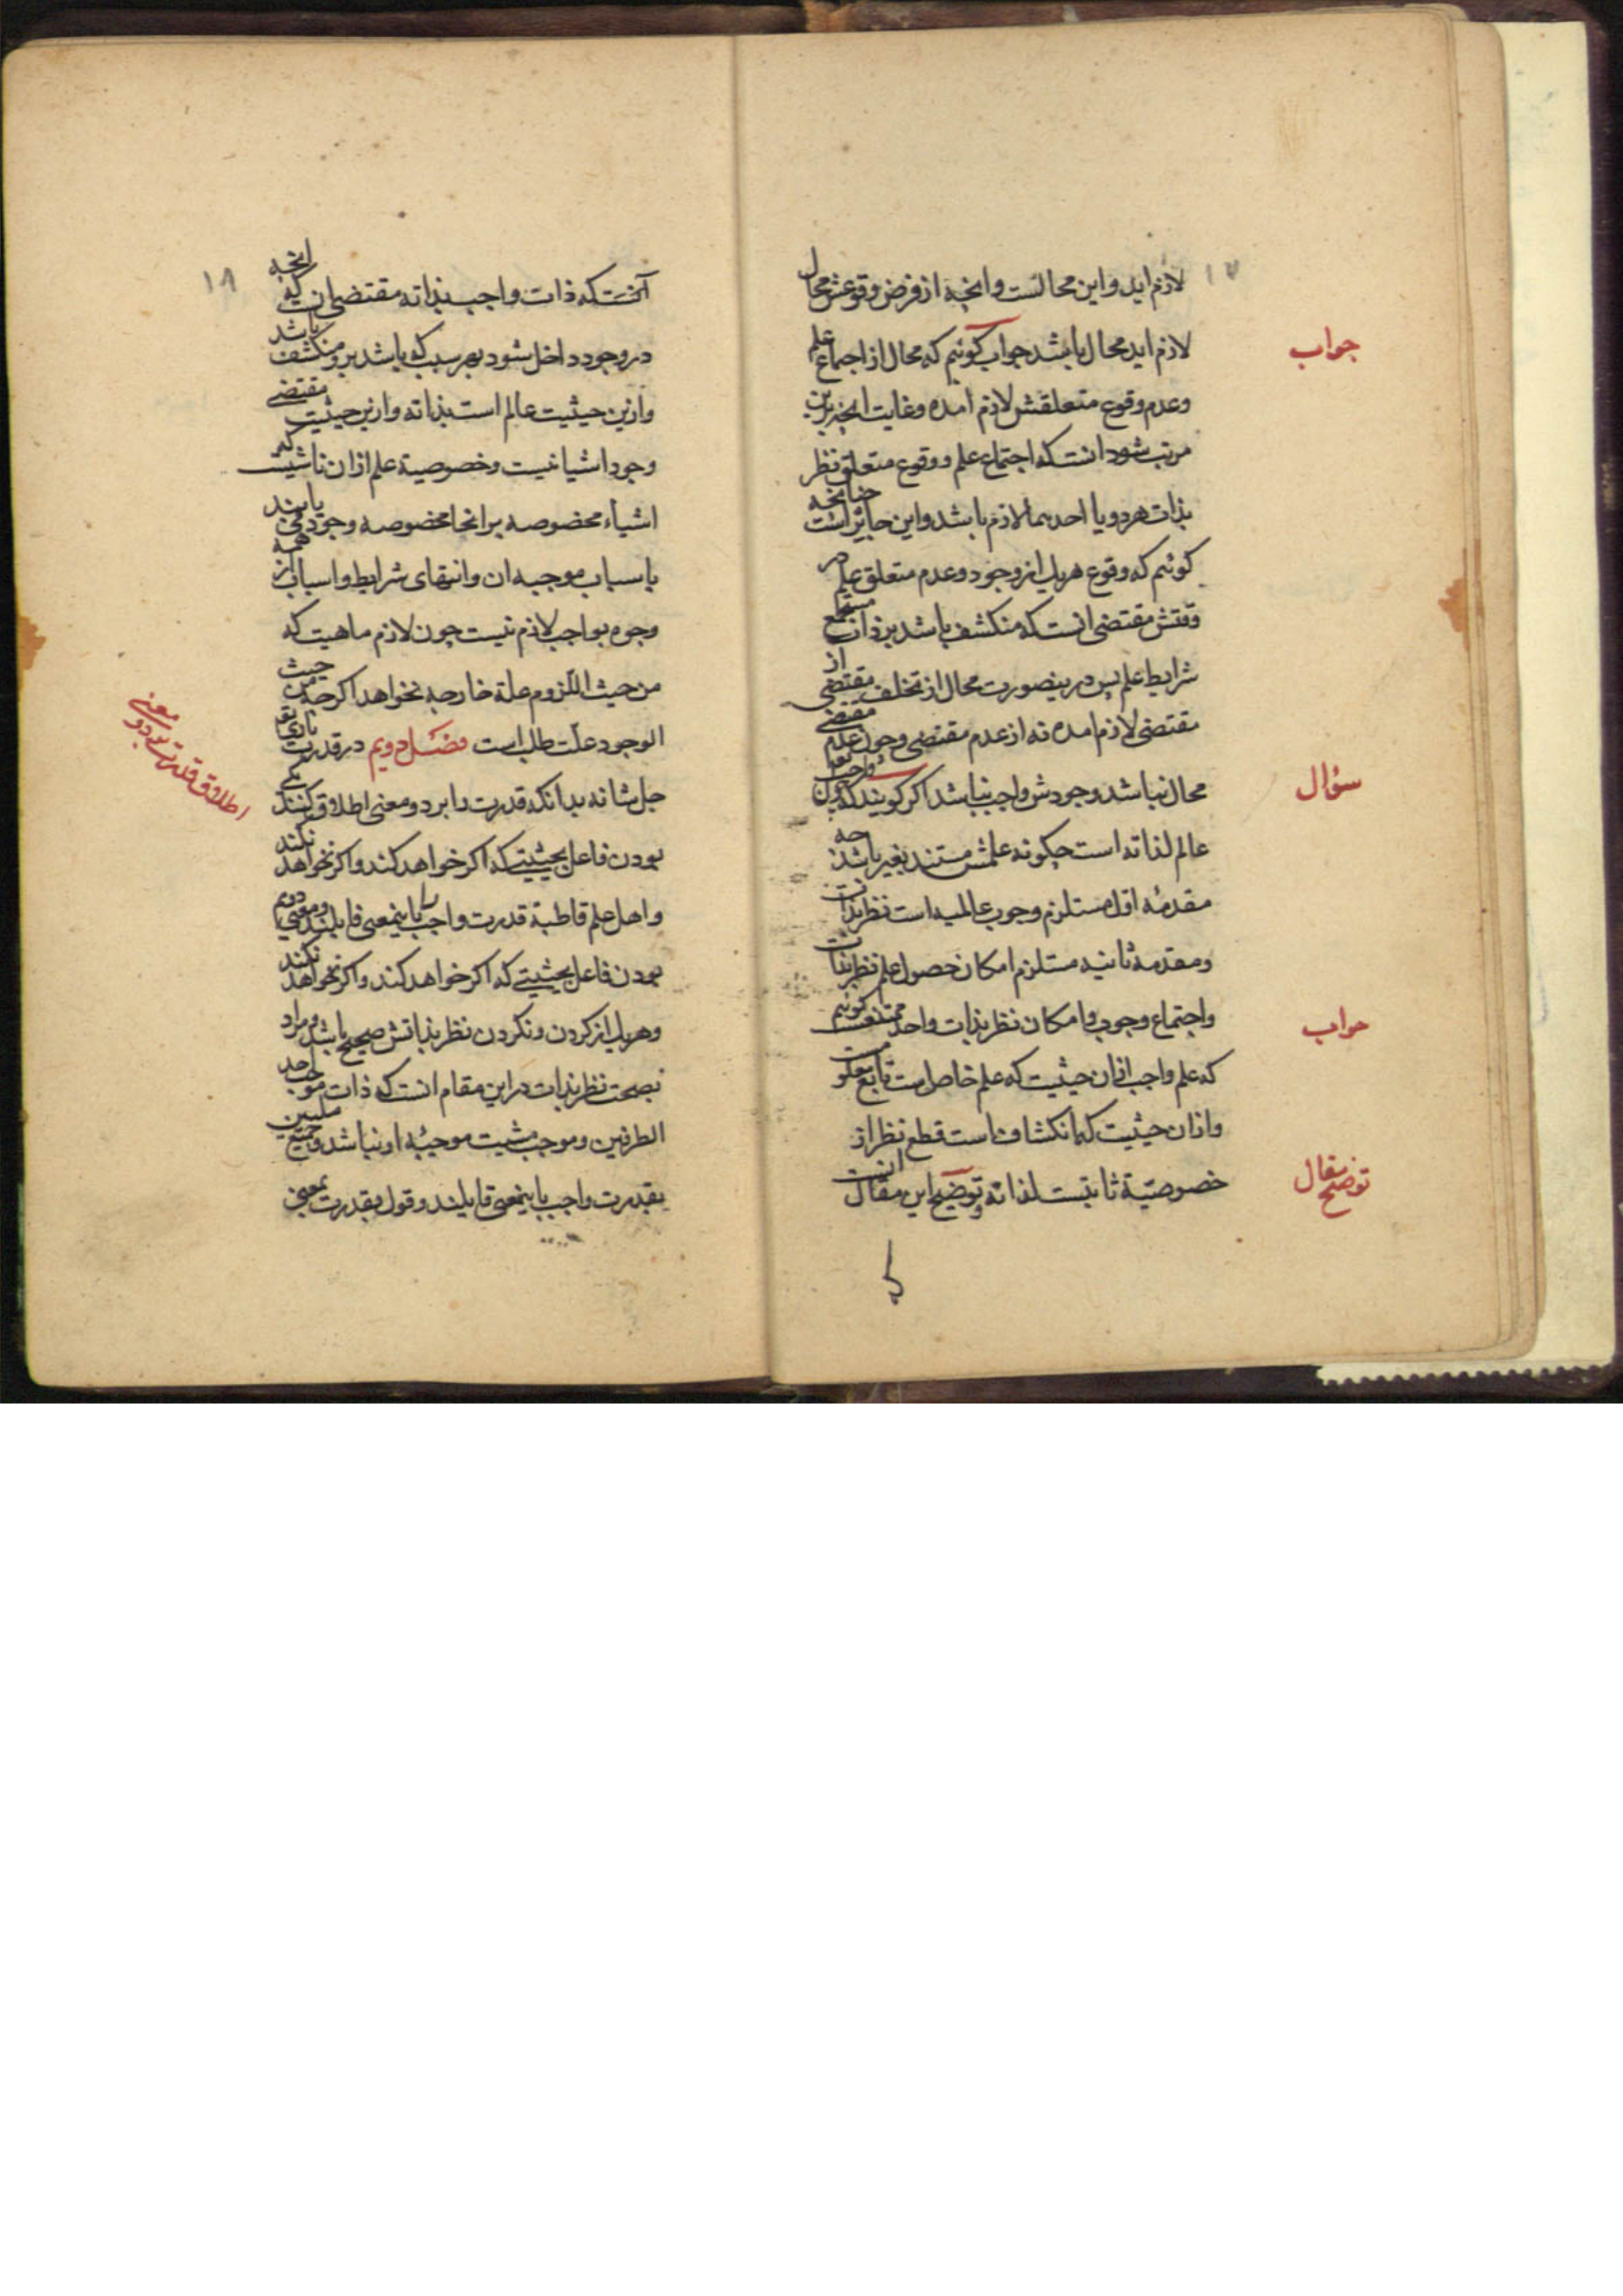 ۱۷
لازم اید و این محالست و انچه از فرض وقوعش محال
لازم اید محال باشد جواب کوئیم که محال از اجتماع علم
جواب
و عدم وقوع متعلقش لازم امده و غایت انچه برین
مرتب شود انست که اجتماع علم و وقوع متعلق نظر
بذات هر دو یا احدهما لازم باشد و این جایز است چنانچه
کوئیم که وقوع هریک از وجود و عدم متعلق علم در
وقتش مقتضی انست که منکشف باشد بر ذات مستجمع
شرایط علم پس درینصورت محال از تخلف مقتضی از
مقتضی لازم امده نه از عدم مقتضی و چون عدم مقتضی
محال نباشد وجودش واجب نباشد اکر کویند که چون واجب تعا
سؤال
عالم لذاته است چکونه علمش مستند بغیر باشد چه
مقدمهٔ اول مستلزم وجوب عالمیه است نظر بذات
و مقدمه ثانیه مستلزم امکان حصول علم نظر بذات
و اجتماع وجوب و امکان نظر بذات واحد ممتنعست کوئیم
جواب
که علم واجب ازان حیثیت که علم خاص است تابع معلومست
و ازان حیثیت که انکشاف است قطع نظر از
خصوصیّة ثابتست لذاته و توضیح این مقال انست
توضیح مقال
۱۸
آنست که ذات واجب بذاته مقتضی ان که انچه
در وجود داخل شود بهر سبب که باشد برو منکشف باشد
و ازین حیثیت عالم است بذاته و ازین حیثیت مقتضی
وجود اشیا نیست و خصوصیة علم ازان ناشیست که
اشیاء مخصوصه بر انحا مخصوصه وجود می یابند
باسباب موجبه ان و انتهای شرایط و اسباب از همه
وجوه بواجب لازم نیست چون لازم ماهیت که
من حیث اللّزوم علة خارجه نخواهد اکرچه من حیث
الوجود علّت طلب است فصل دویم در قدرت باری تع
جل شانه بدانکه قدرت را بر دو معنی اطلاق کنند یکی
اطلاق قدرت بر دو معنی
بودن فاعل بحیثیتی که اکر خواهد کند و اکر نخواهد نکند
و اهل علم قاطبة قدرت واجب را باینمعنی قایلند و معنی دویم
بودن فاعل بحیثیتی که اکر خواهد کند و اکر نخواهد نکند
و هریک از کردن و نکردن نظر بذاتش صحیح باشد و مراد
بصحت نظر بذات در این مقام انست که ذات موجب احد
الطرفین و موجب مشیت موجبهٔ او نباشد و جمیع ملیین
بقدرت واجب باینمعنی قایلند و قول بقدرت بمعنی